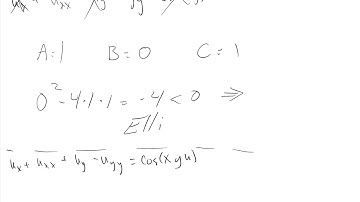 A=1 B=0 C=1
0²-4·1·1=-4<0 ⇒
Elli
uₓ+uₓₓ+u_y-u_yy=cos(xyu)